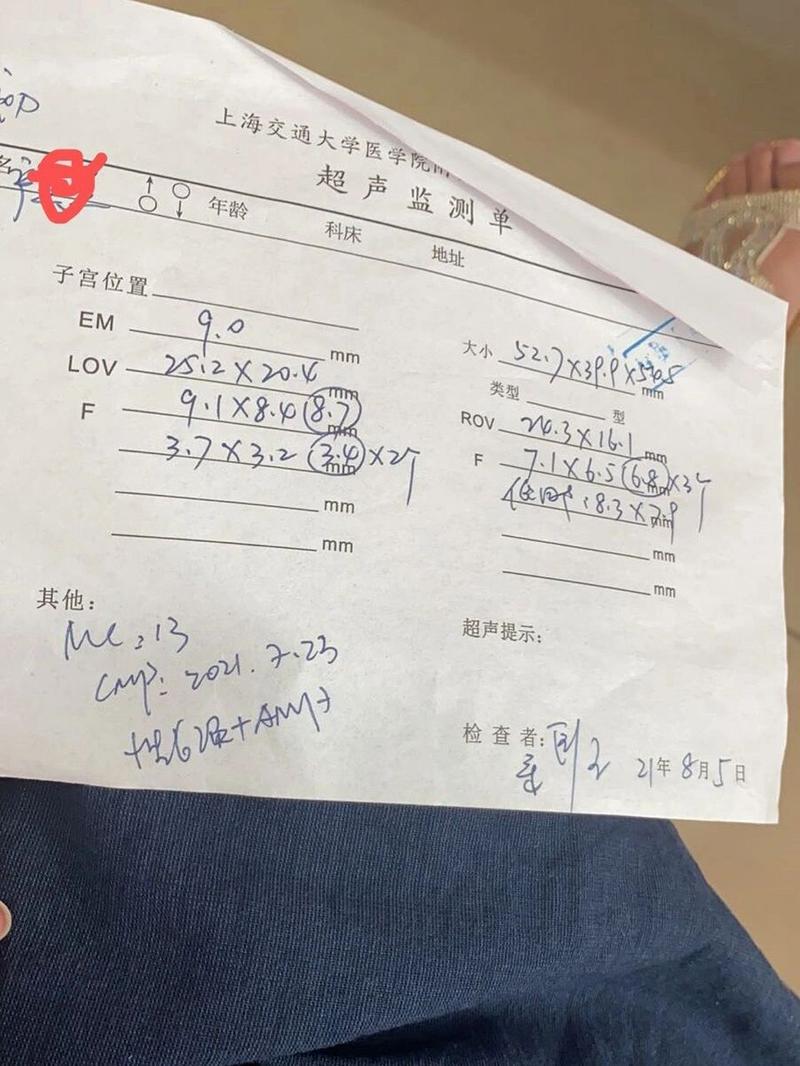 上海交通大学医学院附
超声监测单
名
年龄 科床 地址
子宫位置
EM 9.0 mm
LOV 25.2×20.4
F 9.1×8.4 (8.7) mm
3.7×3.2 (3.4) mm ×2个
mm
mm
大小 52.7×39.9×50.5 mm
类型 型
ROV 24.3×16.1 mm
F 7.1×6.5 (6.8) mm ×3个
:8.3×7.9 mm
mm
mm
其他:
MC:13
LMP: 2021.7.23
+AMH
超声提示:
检查者:
21年8月5日